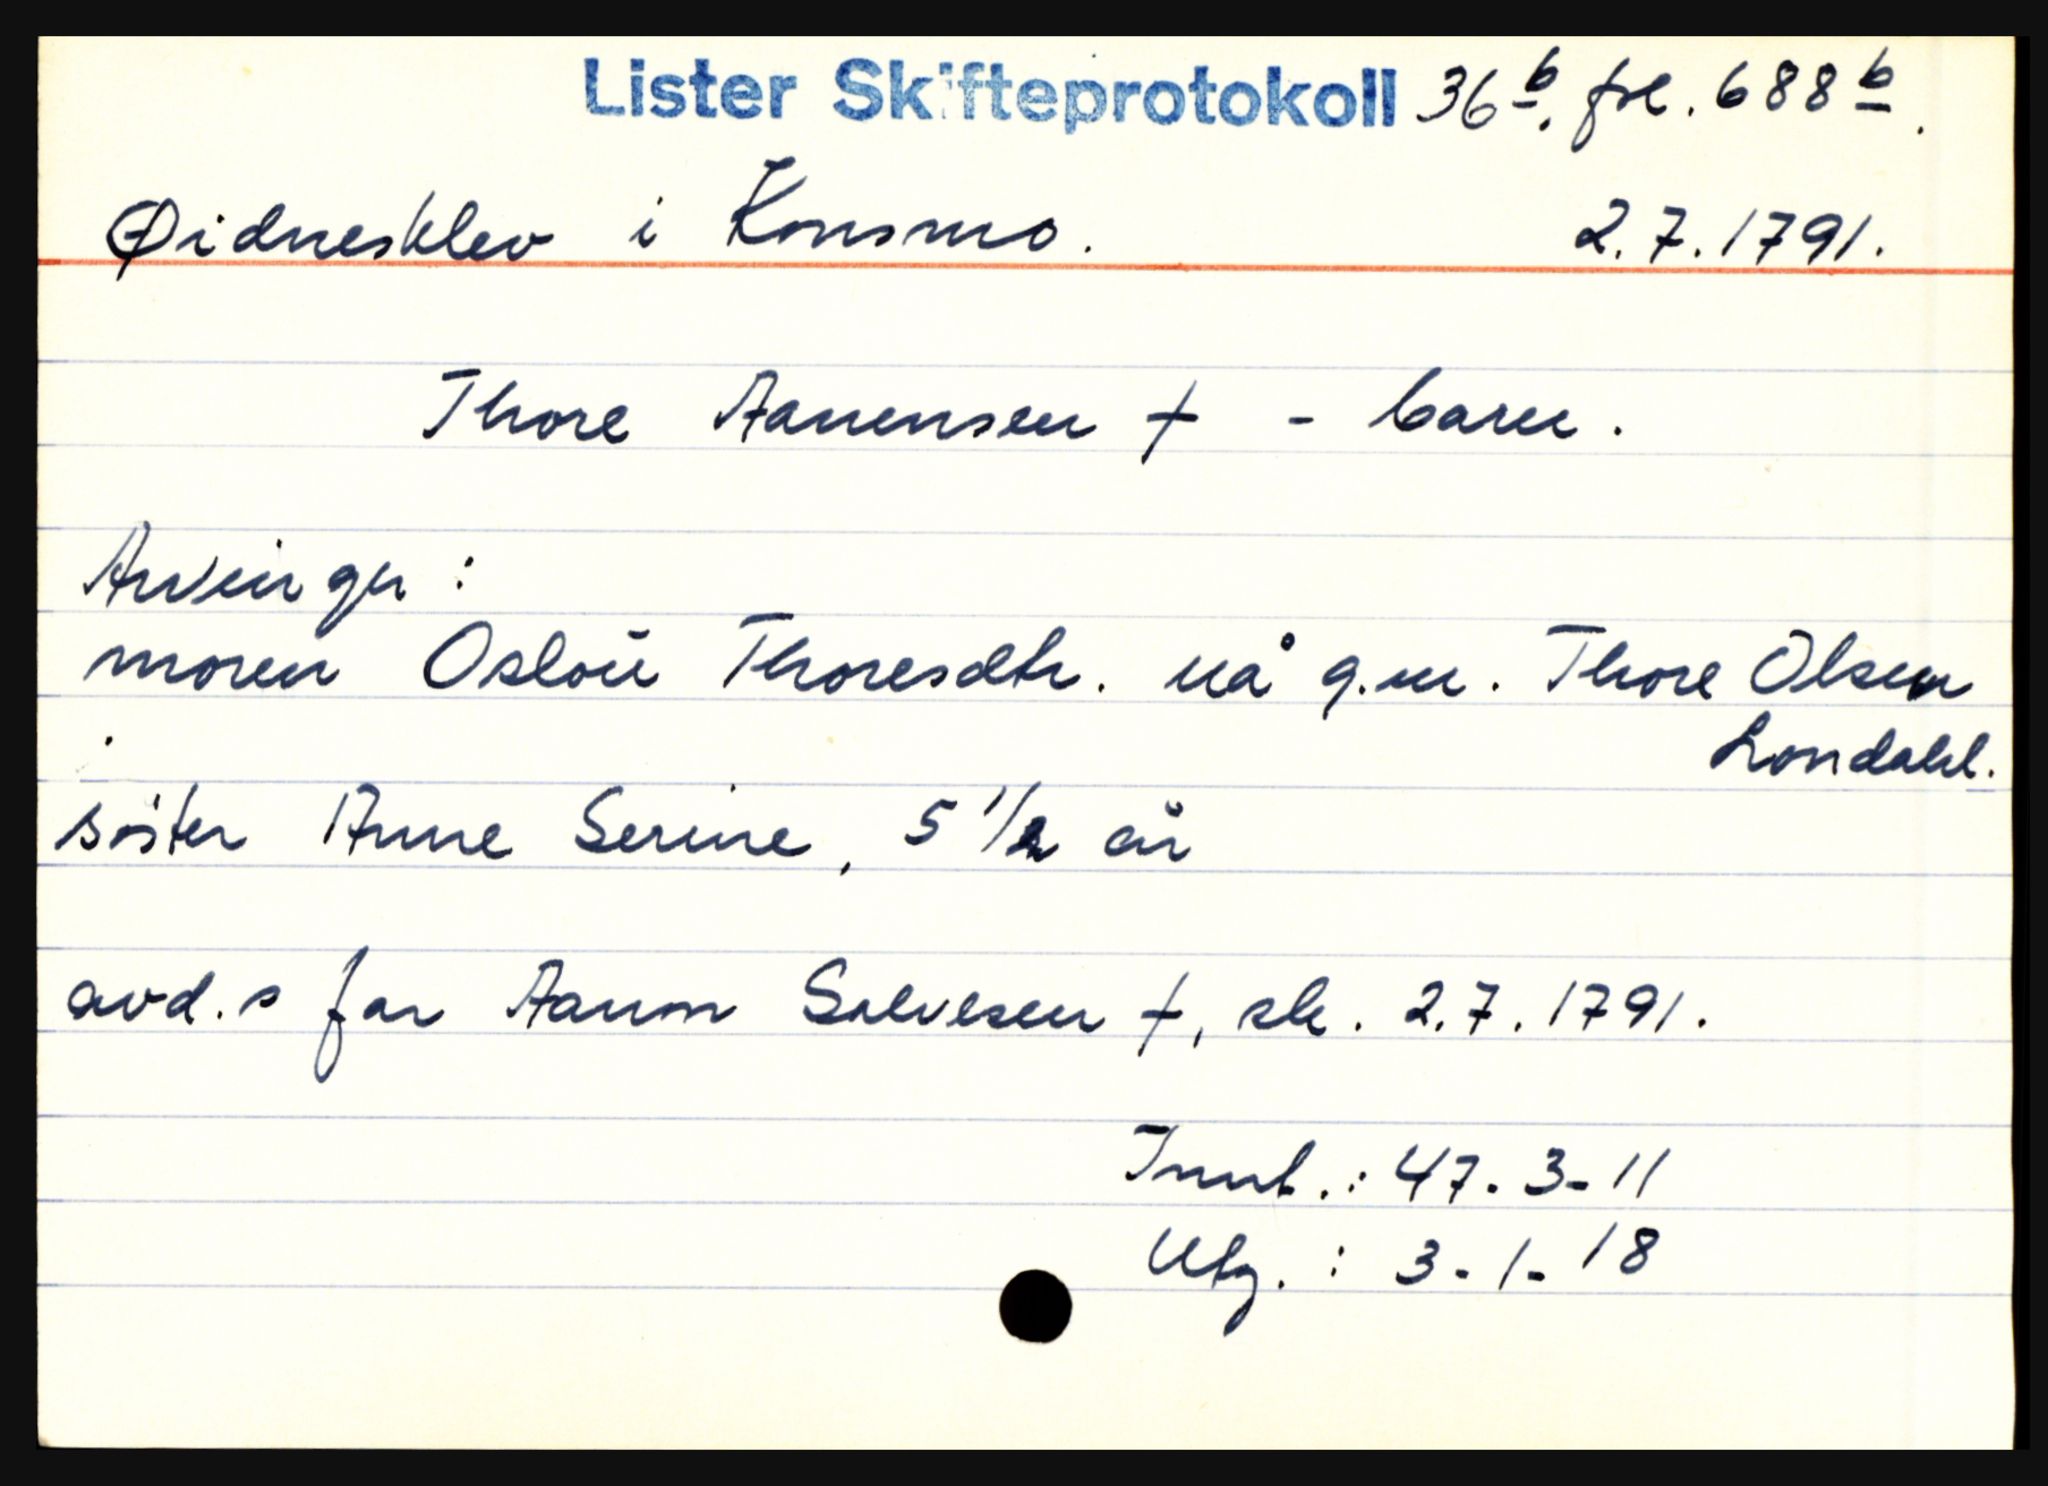 Lister Skifteprotokoll 36 b. fol. 688 b.
Øidnesklev i Konsmo. 2.7.1791.
Thore Aanensen † - barn.
Arvinger:
moren Oslou Thoresdtr. nå g.m. Thore Olsen
Londahl.
søster Anne Serine, 5 1/2 år
avd.s far Aanon Salvesen †, sk. 2.7.1791.
Innt.: 47-3-11
Utg.: 3-1-18